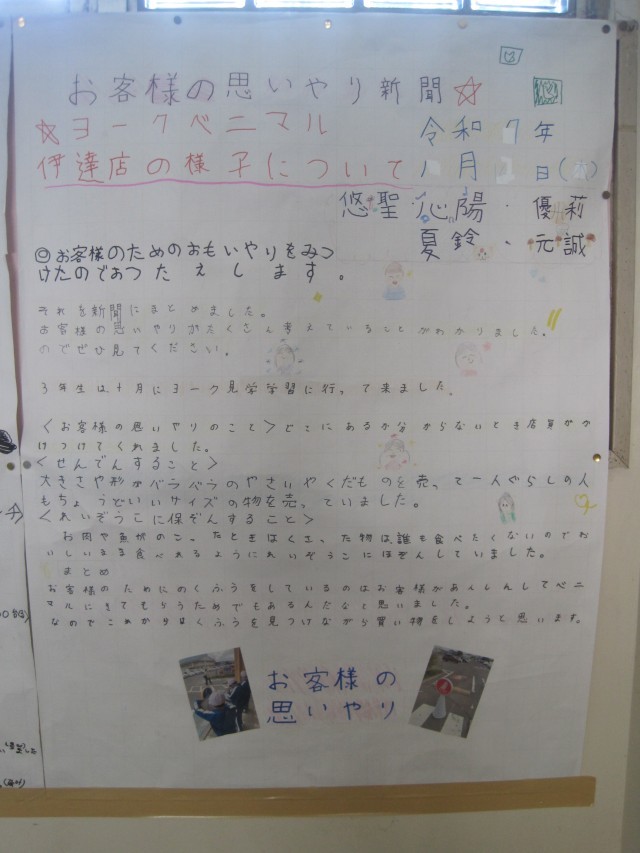 お客様の思いやり新聞☆
☆ヨークベニマル
伊達店の様子について
令和7年
月 日
悠聖・心陽・優莉
夏鈴・元誠
◎お客様のためのおもいやりをみつ
けたのでおつたえします。
それを新聞にまとめました。
お客様の思いやりがたくさん考えていることがわかりました。
のでぜひ見てください。
3年生は十月にヨーク見学学習に行って来ました。
<お客様の思いやりのこと>どこにあるか分からないとき店員がか
けつけてくれました。
<せんでんすること>
大きさや形がバラバラのやさいやくだものを売って一人ぐらしの人
もちょうどいいサイズの物を売っていました。
<れいぞうこに保ぞんすること>
お肉や魚がのこったときはくさった物は誰も食べたくないのでお
いしいまま食べれるようにれいぞうこにほぞんしていました。
まとめ
お客様のためにのくふうをしているのはお客様があんしんしてベニ
マルにきてもらうためでもあるんだなと思いました。
なのでこれからはくふうを見つけながら買い物をしようと思います。
お客様の
思いやり